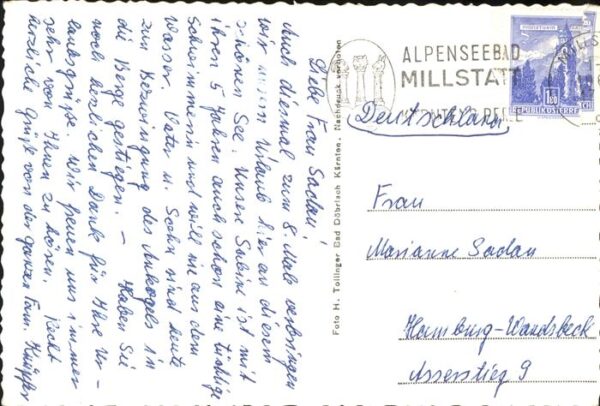 Liebe Frau Sadau!
Auch diesmal zum 8. Mal verbringen
wir unsern Urlaub hier an diesem
schönen See. Unsere Sabine ist mit
ihren 5 Jahren auch schon eine tüchtige
Schwimmerin und will nie aus dem
Wasser. Vater u. Sohn sind heute
zur Bezwingung des Ankogels in
die Berge gestiegen. – Haben Sie
noch herzlichen Dank für Ihre Ur-
laubsgrüße. Wir freuen uns immer
sehr von Ihnen zu hören. Recht
herzliche Grüße von der ganzen Fam.
Foto H. Tollinger Bad Döbriach Kärnten. Nachdruck verboten
ALPENSEEBAD
MILLSTATT
PERLE
1.80
REPUBLIK ÖSTERREICH
Deutschland
Frau
Marianne Sadau
Hamburg-Wandsbeck
Asserstieg 9